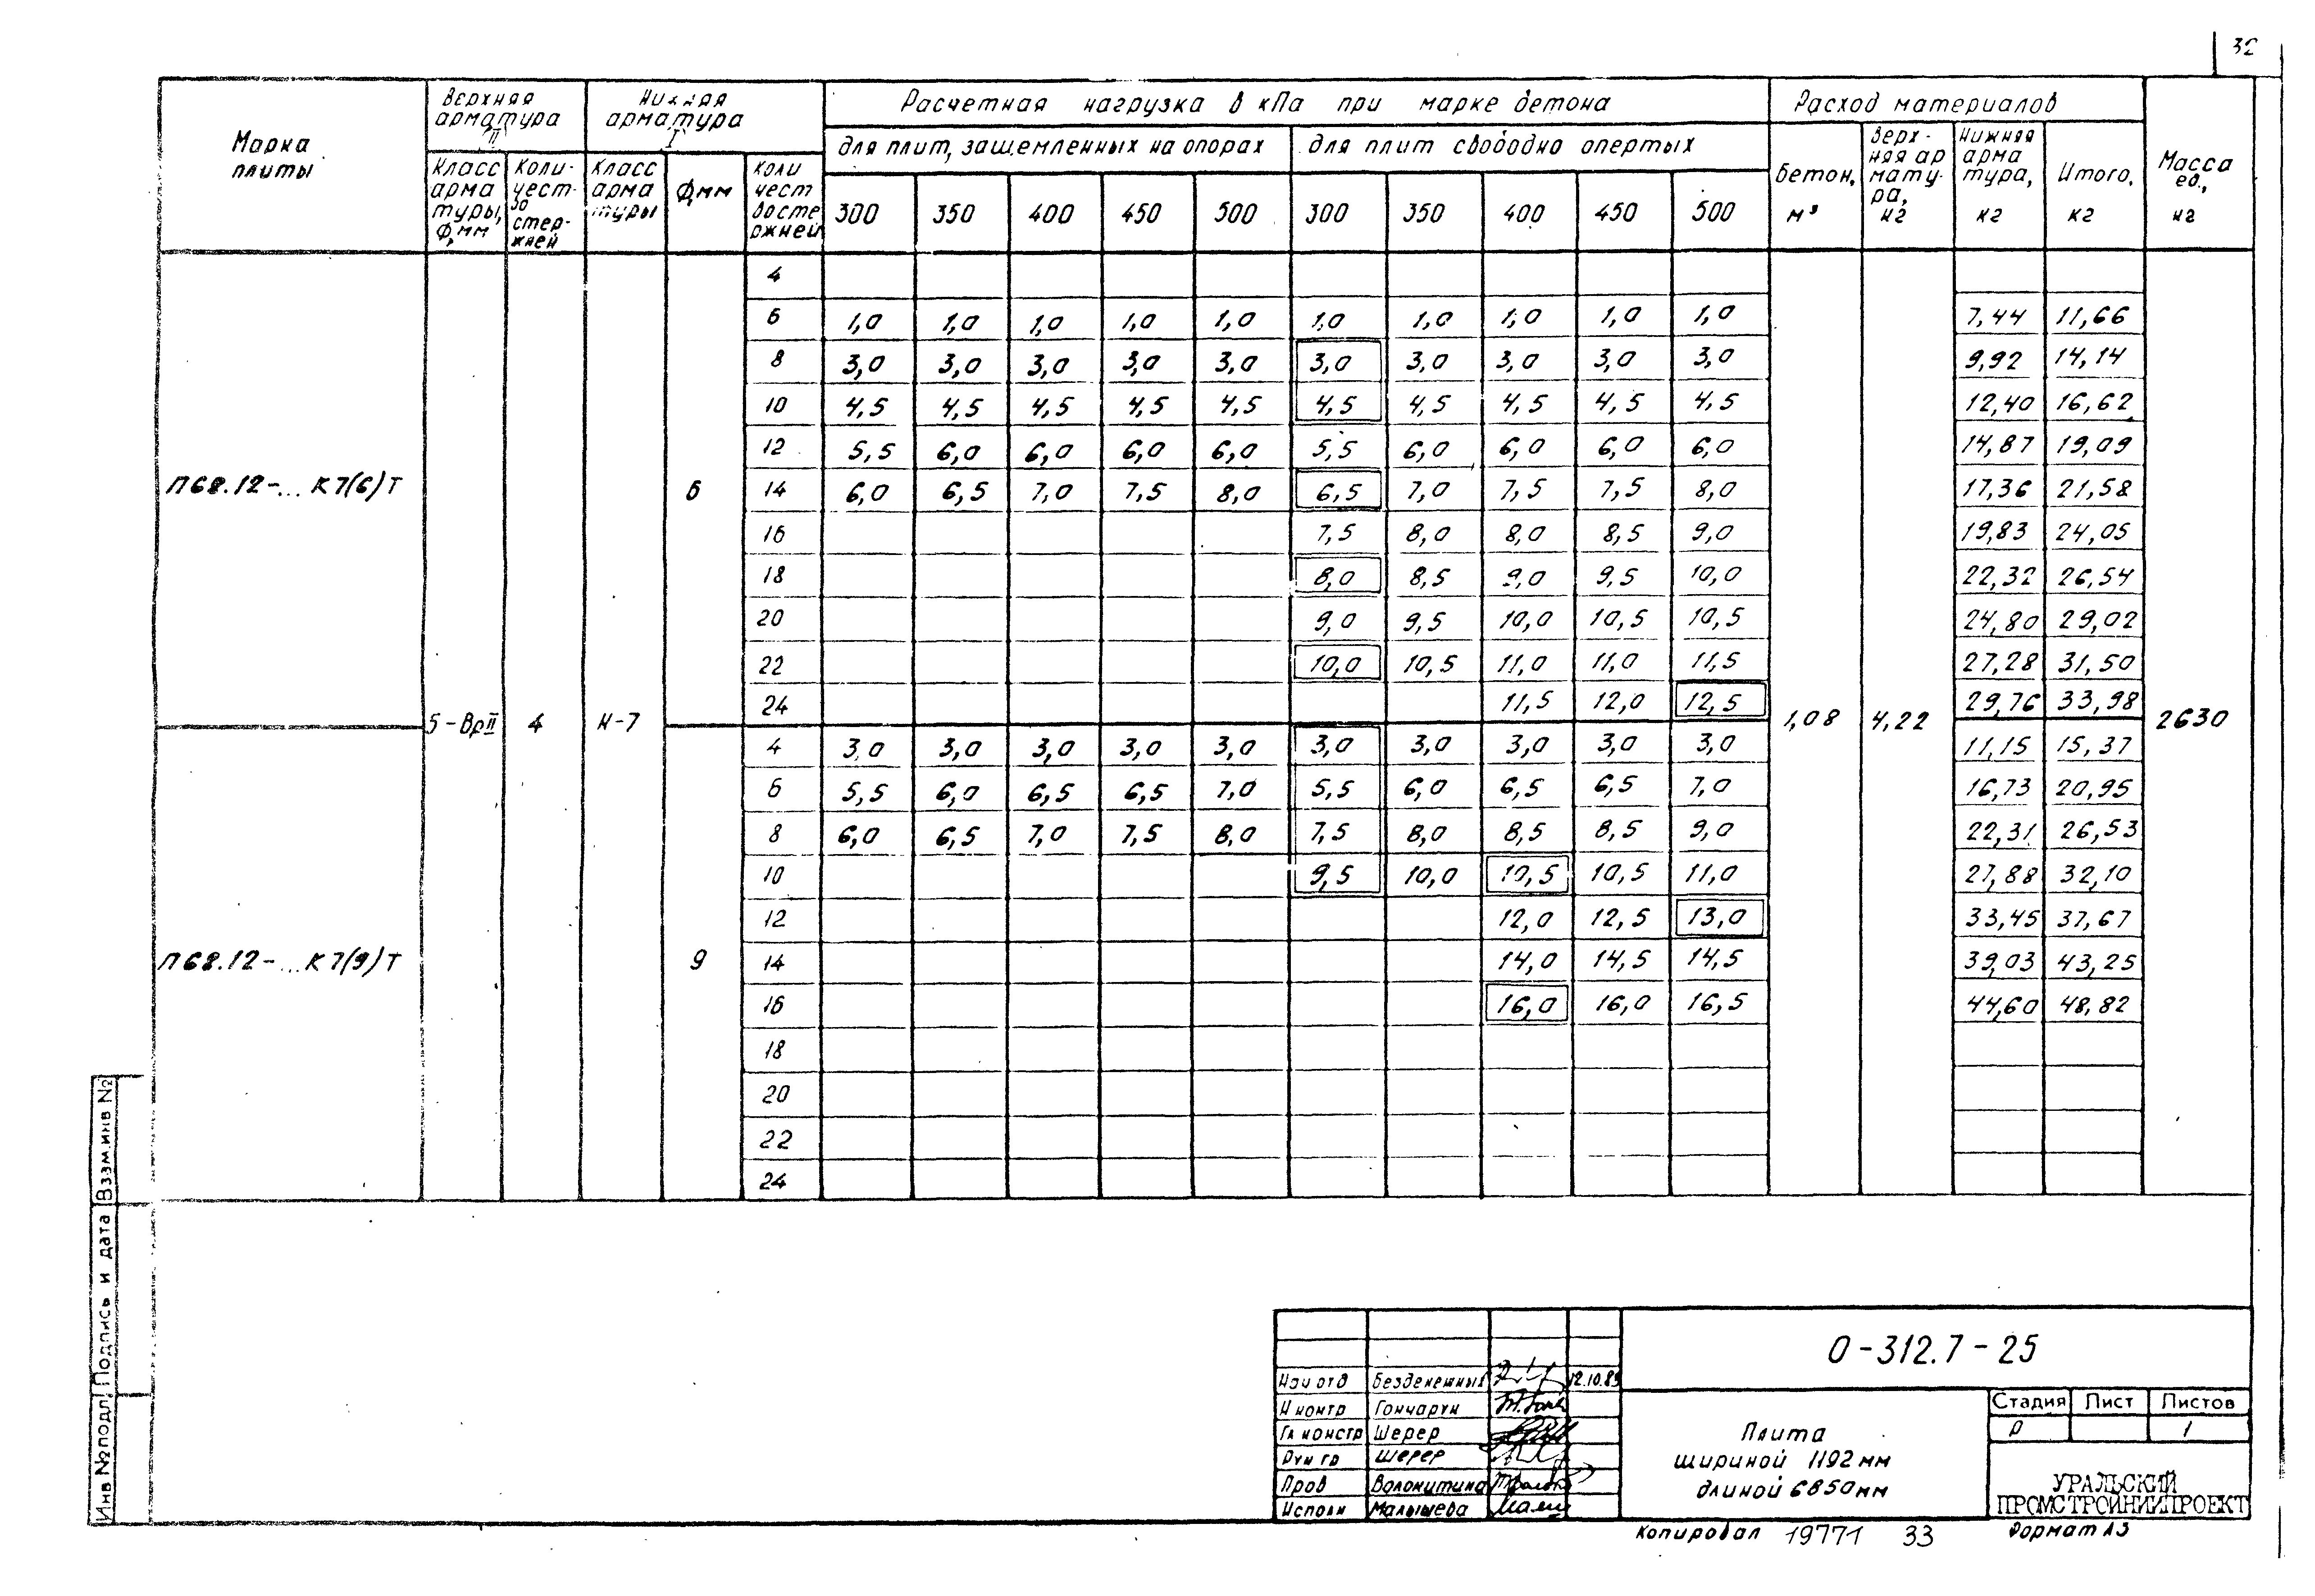 32
Марка плиты
Верхняя арматура II
Нижняя арматура I
Расчетная нагрузка в кПа при марке бетона
Расход материалов
Масса ед., кг
для плит, защемленных на опорах
для плит свободно опертых
Класс арматуры, Ф,мм
Количество стержней
Класс арматуры
Ф,мм
Количество стержней
300 350 400 450 500 300 350 400 450 500
Бетон, м³
Верхняя арматура, кг
Нижняя арматура, кг
Итого, кг
4
6 1,0 1,0 1,0 1,0 1,0 1,0 1,0 1,0 1,0 1,0 7,44 11,66
8 3,0 3,0 3,0 3,0 3,0 3,0 3,0 3,0 3,0 3,0 9,92 14,14
10 4,5 4,5 4,5 4,5 4,5 4,5 4,5 4,5 4,5 4,5 12,40 16,62
12 5,5 6,0 6,0 6,0 6,0 5,5 6,0 6,0 6,0 6,0 14,87 19,09
П68.12-...К7(6)Т 6 14 6,0 6,5 7,0 7,5 8,0 6,5 7,0 7,5 7,5 8,0 17,36 21,58
16 7,5 8,0 8,0 8,5 9,0 19,83 24,05
18 8,0 8,5 9,0 9,5 10,0 22,32 26,54
20 9,0 9,5 10,0 10,5 10,5 24,80 29,02
22 10,0 10,5 11,0 11,0 11,5 27,28 31,50
24 11,5 12,0 12,5 29,76 33,98
5-ВрII 4 К-7 1,08 4,22 2630
4 3,0 3,0 3,0 3,0 3,0 3,0 3,0 3,0 3,0 3,0 11,15 15,37
6 5,5 6,0 6,5 6,5 7,0 5,5 6,0 6,5 6,5 7,0 16,73 20,95
8 6,0 6,5 7,0 7,5 8,0 7,5 8,0 8,5 8,5 9,0 22,31 26,53
10 9,5 10,0 10,5 10,5 11,0 27,88 32,10
12 12,0 12,5 13,0 33,45 37,67
П68.12-...К7(9)Т 9 14 14,0 14,5 14,5 39,03 43,25
16 16,0 16,0 16,5 44,60 48,82
18
20
22
24
Инв №подл Подпись и дата Взам.инв №
О-312.7-25
Нач отд Безденежных
Н контр Гончарук
Гл констр Шерер
Рук гр Шерер
Пров Волокитина
Исполн Малышева
Плита
шириной 1192мм
длиной 6850мм
Стадия Лист Листов
Р 1
УРАЛЬСКИЙ
ПРОМСТРОЙНИИПРОЕКТ
Копировал 19771 33 Формат А3